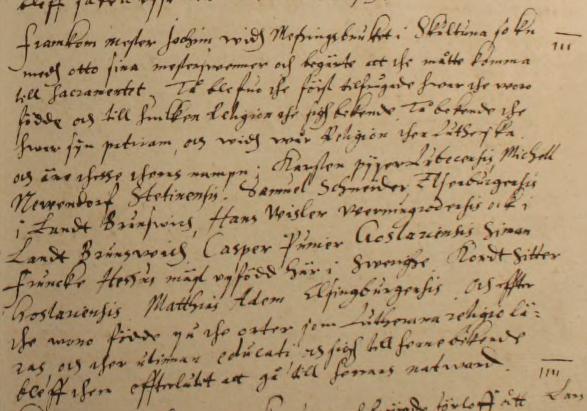 Framkom mester Jochim widh Messingsbruket i Skultuna sokn
medh otto sina mesterswenner och begärte att the måtte komma
till Sacramentet. Tå blefwo the först tilfrågade hwar the woro
födde och till hwilken Religion the sigh bekende. Tå bekende the
hwar syn patriam, och widh wår Religion ther Lutherska
och äre thesse theres nampn: Karsten pijper Lubecensis Michell
Newendorf Stetinensis. Samuel Schneider Ilsenburgensis
i Landt Brunswich, Hans Weisler Werningrodensis ock i
Landt Brunswich Casper Pumer Goslariensis Simon
Francke Hessus mäst upfödd här i Swerighe. Kordt Sitter
Goslariensis Matthias Adem Elsingburgensis. Och effter
the woro födde på the orter som Lutheranna religio lä-
ras och ther utinnan educati och sigh till henne bekende
bleff them efterlåtit att gå till herrans natward.